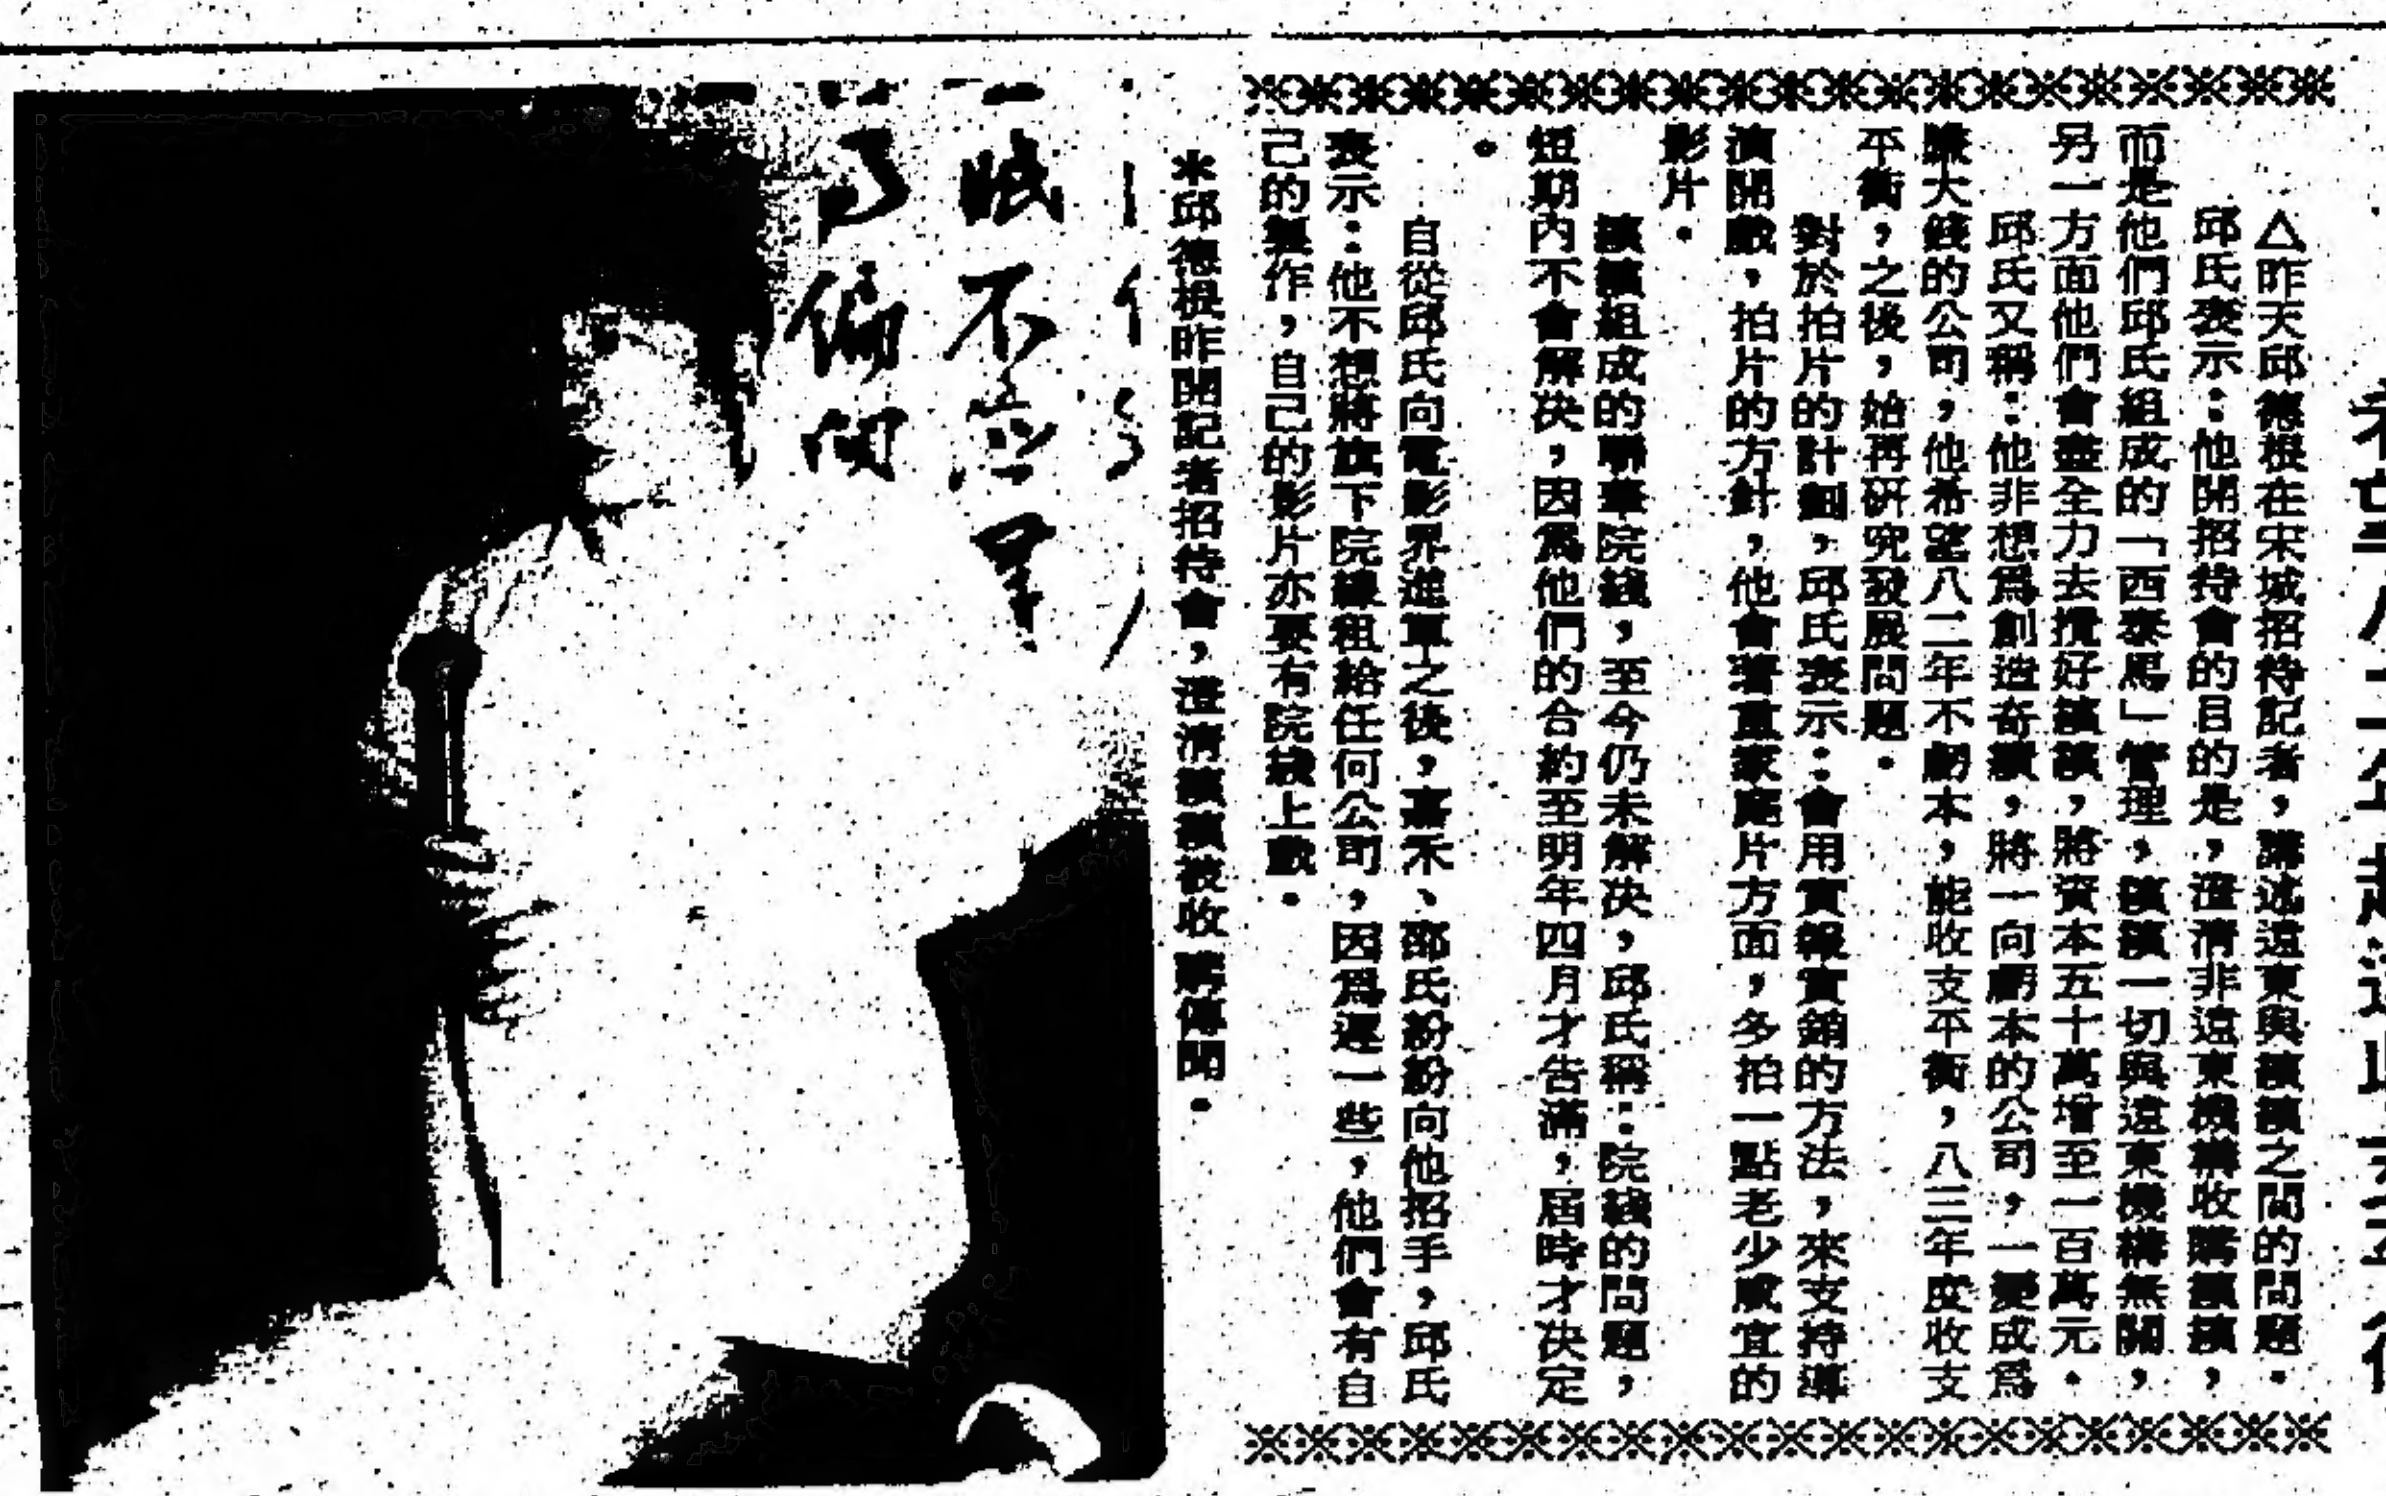 △昨天邱德根在宋城招待記者，講述遠東與繽繽之間的問題。
邱氏表示：他開招待會的目的是，澄清非遠東機構收購繽繽，
而是他們邱氏組成的「西泰馬」管理，繽繽一切與遠東機構無關，
另一方面他們會盡全力去攪好繽繽，將資本五十萬增至一百萬元。
邱氏又稱：他非想爲創造奇蹟，將一向虧本的公司，一變成爲
賺大錢的公司，他希望八二年不虧本，能收支平衡，八三年度收支
平衡，之後，始再研究發展問題。
對於拍片的計劃，邱氏表示：會用實報實銷的方法，來支持導
演開戲，拍片的方針，他會著重家庭片方面，多拍一點老少咸宜的
影片。
繽繽組成的聯華院綫，至今仍未解決，邱氏稱：院綫的問題，
短期內不會解決，因爲他們的合約至明年四月才告滿，屆時才決定
。
自從邱氏向電影界進軍之後，嘉禾、邵氏紛紛向他招手，邱氏
表示：他不想將旗下院綫租給任何公司，因爲遲一些，他們會有自
己的製作，自己的影片亦要有院綫上映。
米邱德根昨開記者招待會，澄清繽繽被收購傳聞。
眠不
偏